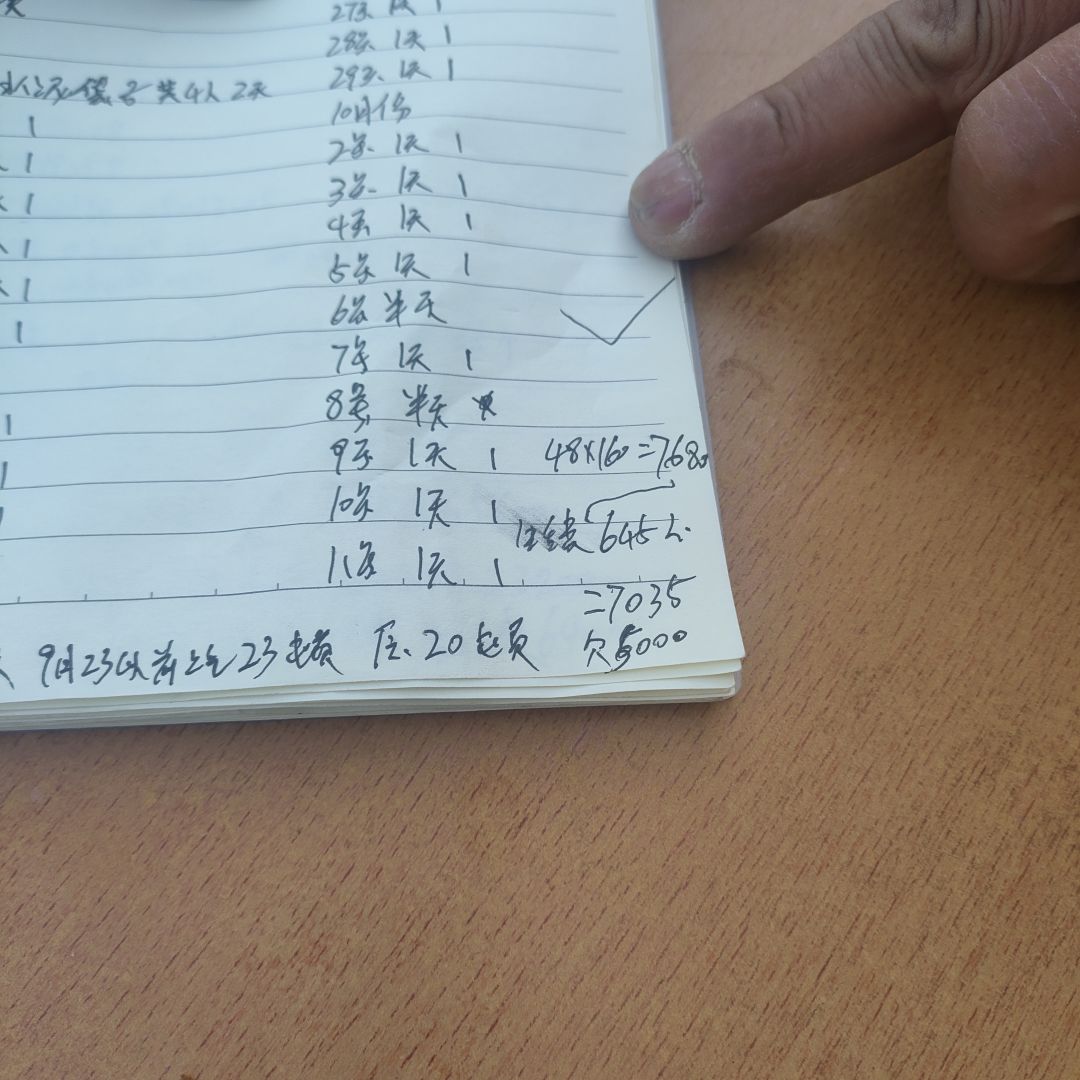 27号 1天 1
28号 1天 1
共4人 2天 29号 1天 1
1 10月份
1 2号 1天 1
1 3号 1天 1
1 4号 1天 1
1 5号 1天 1
1 6号 半天
7号 1天 1
1 8号 半天
1 9号 1天 1 48×160=7680
1 10号 1天 1 645
11号 1天 1
=7035
9月23以前上毛23 20 欠5000